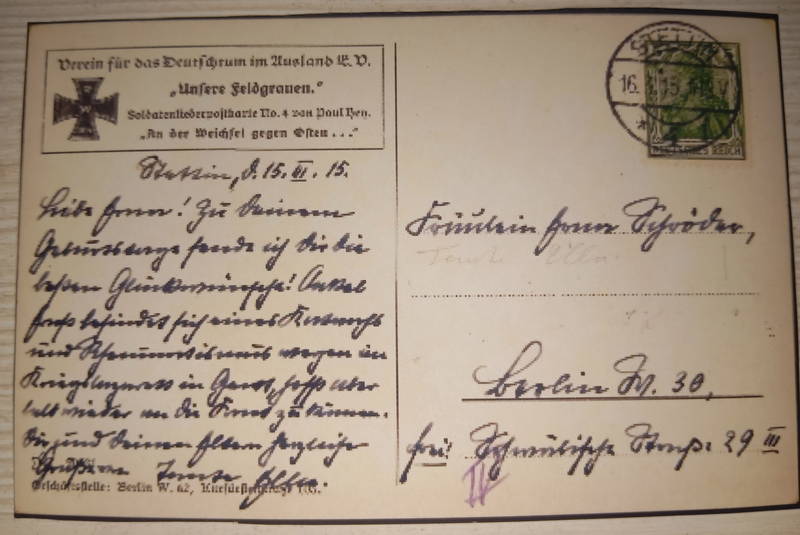 Verein für das Deutschtum im Ausland E. V.
„Unsere Feldgrauen."
Soldatenliederpostkarte No. 4 von Paul Hey.
„An der Weichsel gegen Osten . . ."
Stettin, d. 15. III. 15.
Liebe Erna! Zu Deinem
Geburtstage sende ich Dir die
besten Glückwünsche! Onkel
Ernst befindet sich eines Katarrhs
und Rheumatismus wegen im
Kriegslazarett in Gent, hofft aber
bald wieder an die Front zu können.
Dir und Deinen Eltern herzliche
Grüße von Tante Ella.
Geschäftsstelle: Berlin W. 62, Kurfürstenstraße
STETTIN
16. 3. 15
DEUTSCHES REICH
Fräulein Erna Schröder,
Tante Ella
Berlin W. 30,
frei! Schwäbische Straße 29 III